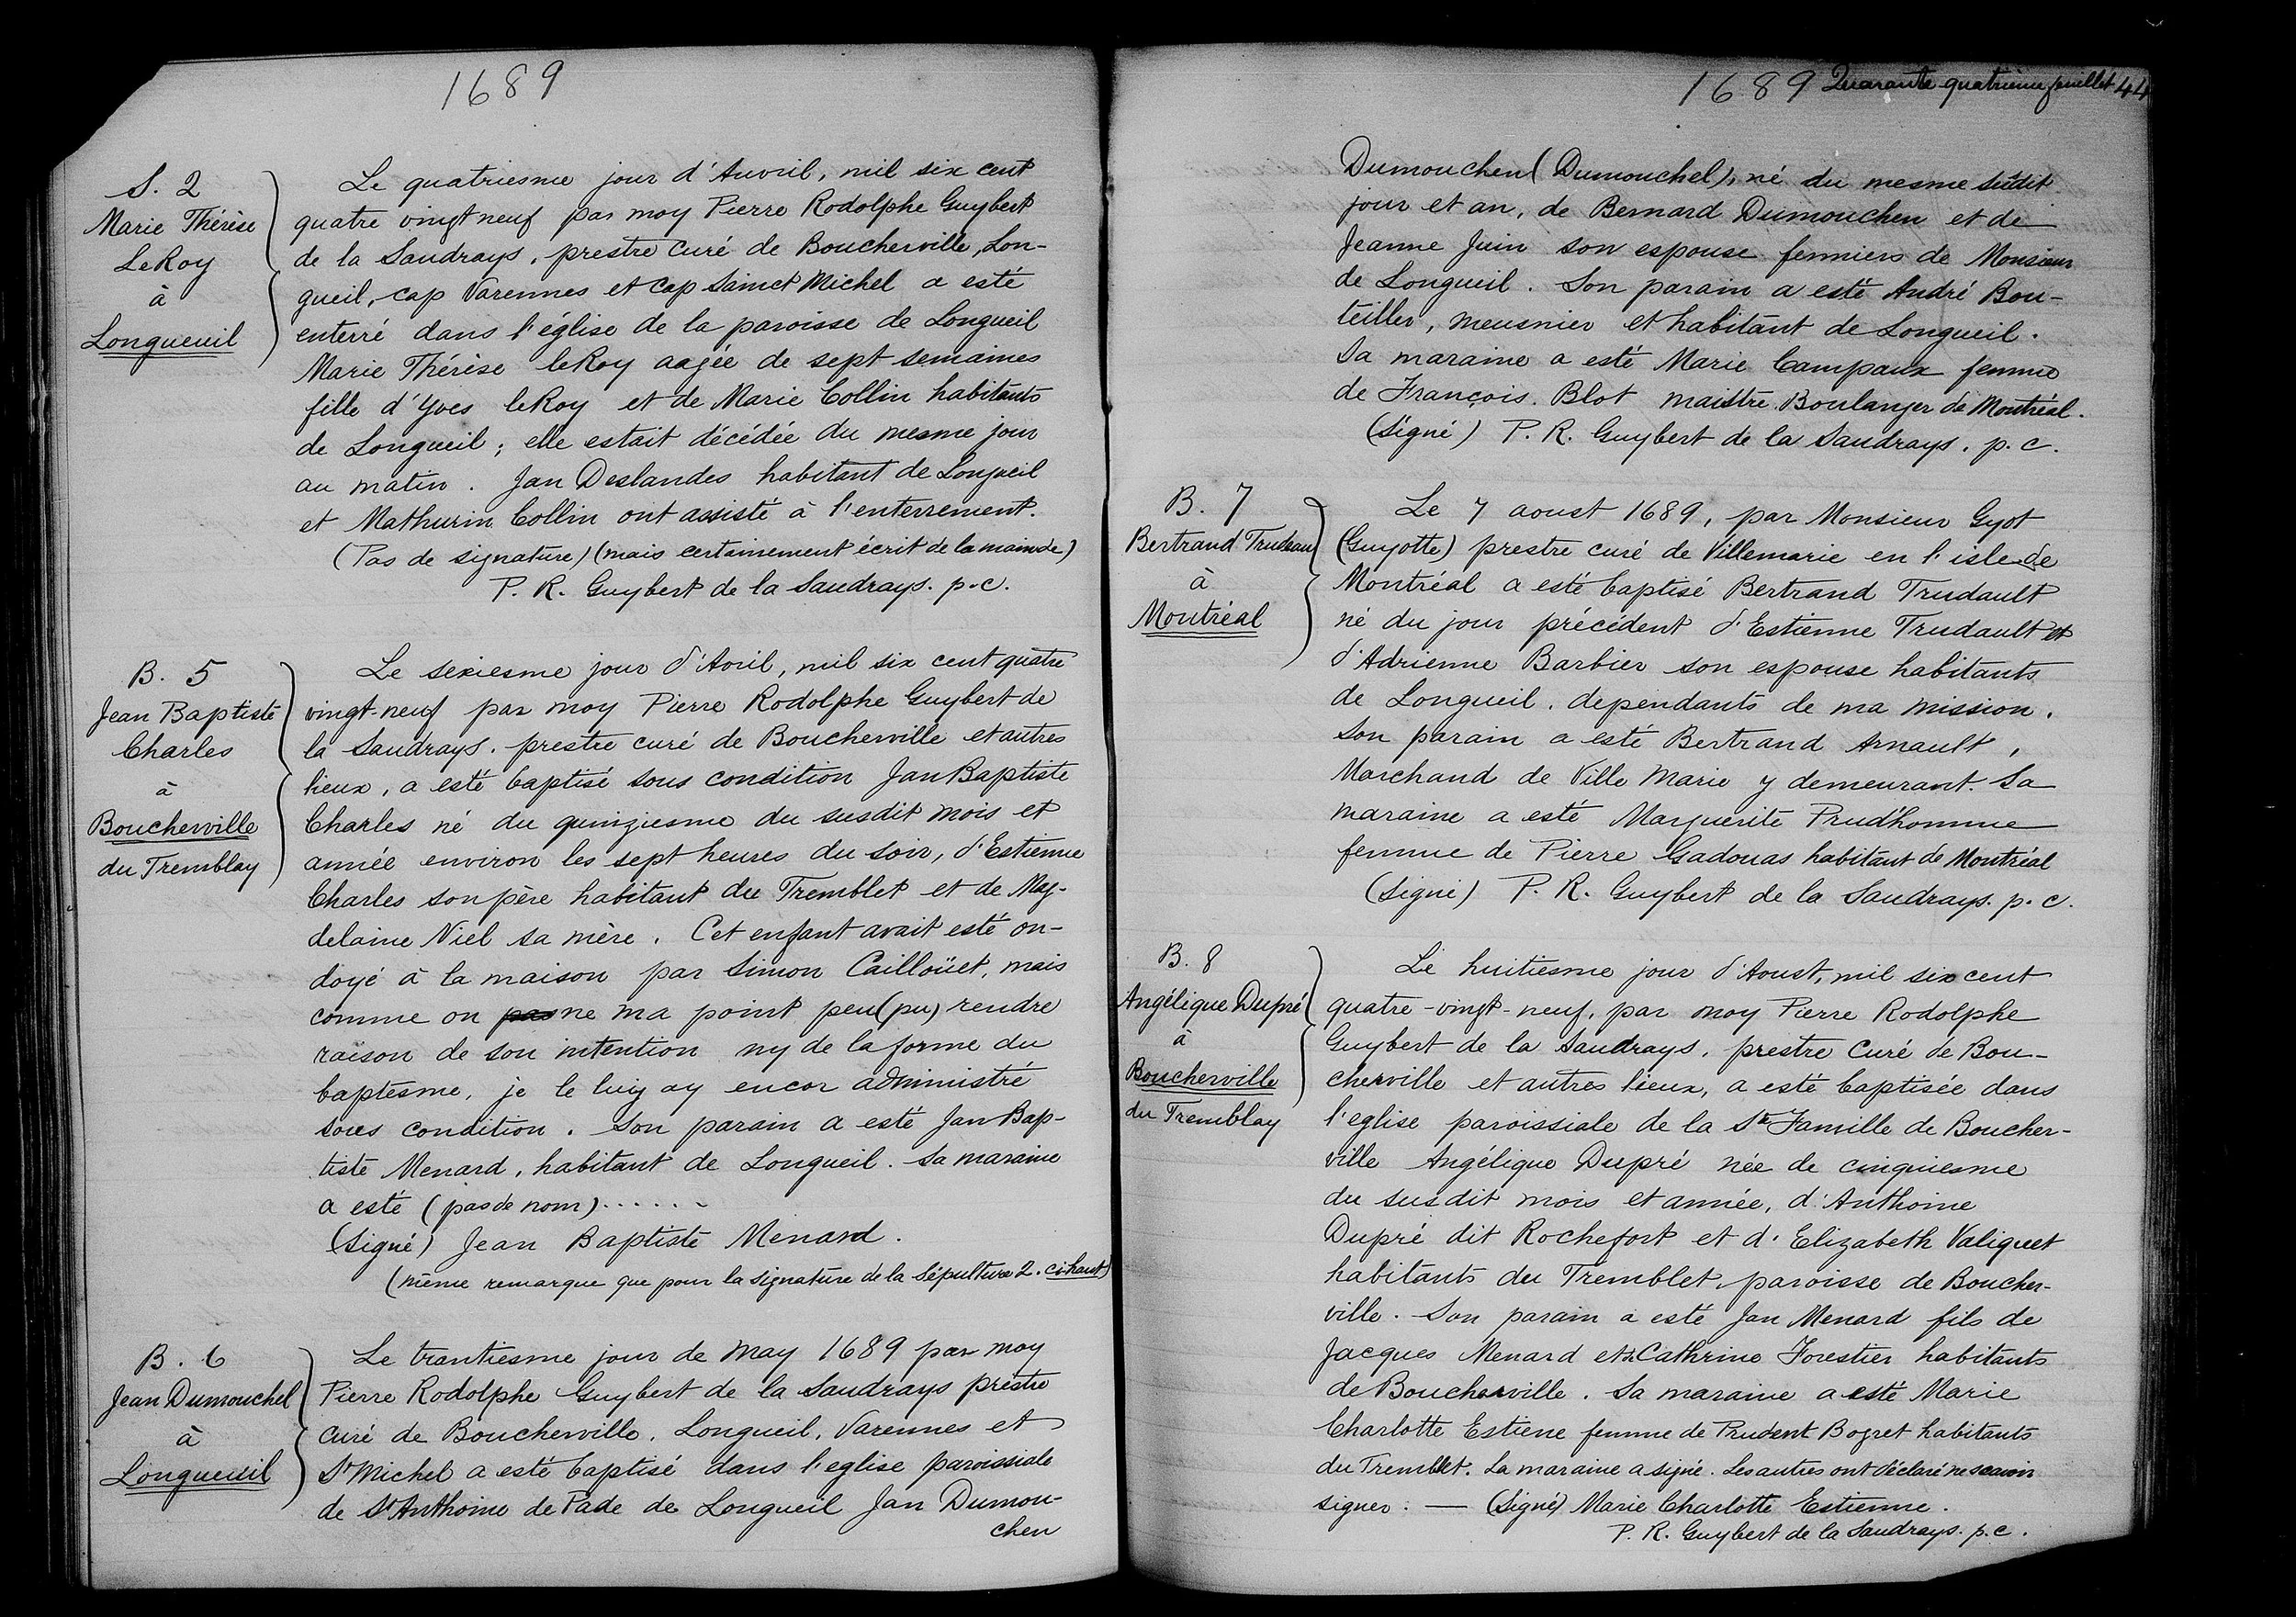 1689
S. 2
Marie Thérèse
LeRoy
à
Longueuil
Le quatriesme jour d'Auvril, mil six cent
quatre vingt neuf par moy Pierre Rodolphe Guybert
de la Saudrays, prestre curé de Boucherville, Lon-
gueil, cap Varennes et cap Sainct Michel a esté
enterré dans l'église de la paroisse de Longueil
Marie Thérèse leRoy aagée de sept semaines
fille d'Yves leRoy et de Marie Collin habitants
de Longueil; elle estait décédée du mesme jour
au matin. Jan Deslandes habitant de Longueil
et Mathurin Collin ont assisté à l'enterrement.
(Pas de signature) (mais certainement écrit de la main de)
P. R. Guybert de la Saudrays. p.c.
B. 5
Jean Baptiste
Charles
à
Boucherville
du Tremblay
Le sexiesme jour d'Avril, mil six cent quatre
vingt-neuf par moy Pierre Rodolphe Guybert de
la Saudrays. prestre curé de Boucherville et autres
lieux, a esté baptisé sous condition Jan Baptiste
Charles né du quinziesme du susdit mois et
année environ les sept heures du soir, d'Estienne
Charles son père habitant du Tremblet et de Mag-
delaine Niel sa mère. Cet enfant avait esté on-
doyé à la maison par Simon Cailloüet, mais
comme on pas ne ma point peu (pu) rendre
raison de son intention ny de la forme du
baptesme, je le luy ay encor administré
sous condition. Son parain a esté Jan Bap-
tiste Menard, habitant de Longueil. Sa maraine
a esté (pas de nom)......
(Signé) Jean Baptiste Menard.
(même remarque que pour la signature de la Sépulture 2. ci-haut)
B. 6
Jean Dumouchel
à
Longueuil
Le trantiesme jour de may 1689 par moy
Pierre Rodolphe Guybert de la Saudrays prestre
curé de Boucherville, Longueil, Varennes et
St Michel a esté baptisé dans l'eglise paroissiale
de St Anthoine de Pade de Longueil Jan Dumou-
chen
1689 Quarante quatrième feuillet 44
Dumouchen (Dumouchel), né du mesme sudit
jour et an, de Bernard Dumouchen et de
Jeanne Juin son espouse fermiers de Monsieur
de Longueil. Son parain a esté André Bou-
teiller, meusnier et habitant de Longueil.
Sa maraine a esté Marie Campaux femme
de François Blot maistre Boulanger de Montréal.
(Signé) P. R. Guybert de la Saudrays. p.c.
B. 7
Bertrand Trudeau
à
Montréal
Le 7 aoust 1689, par Monsieur Gyot
(Guyotte) prestre curé de Villemarie en l'isle de
Montréal a esté baptisé Bertrand Trudault
né du jour précédent d'Estienne Trudault et
d'Adrienne Barbier son espouse habitants
de Longueil. dependants de ma mission.
Son parain a esté Bertrand Arnault,
Marchand de Ville Marie y demeurant. Sa
maraine a esté Marguerite Prud'homme
femme de Pierre Gadouas habitant de Montréal
(Signé) P. R. Guybert de la Saudrays. p. c.
B. 8
Angélique Dupré
à
Boucherville
du Tremblay
Le huitiesme jour d'Aoust, mil six cent
quatre-vingt-neuf, par moy Pierre Rodolphe
Guybert de la Saudrays, prestre Curé de Bou-
cherville et autres lieux, a esté baptisée dans
l'eglise paroissiale de la Ste Famille de Boucher-
ville Angélique Dupré née de cinquiesme
du susdit mois et année, d'Anthoine
Dupré dit Rochefort et d'Elizabeth Valiquet
habitants du Tremblet, paroisse de Boucher-
ville. Son parain a esté Jan Menard fils de
Jacques Menard et de Cathrine Forestier habitants
de Boucherville. Sa maraine a esté Marie
Charlotte Estiene femme de Prudent Bogret habitants
du Tremblet. La maraine a signé. Les autres ont déclaré ne scavoir
signer. — (Signé) Marie Charlotte Estienne.
P. R. Guybert de la Saudrays. p.c.